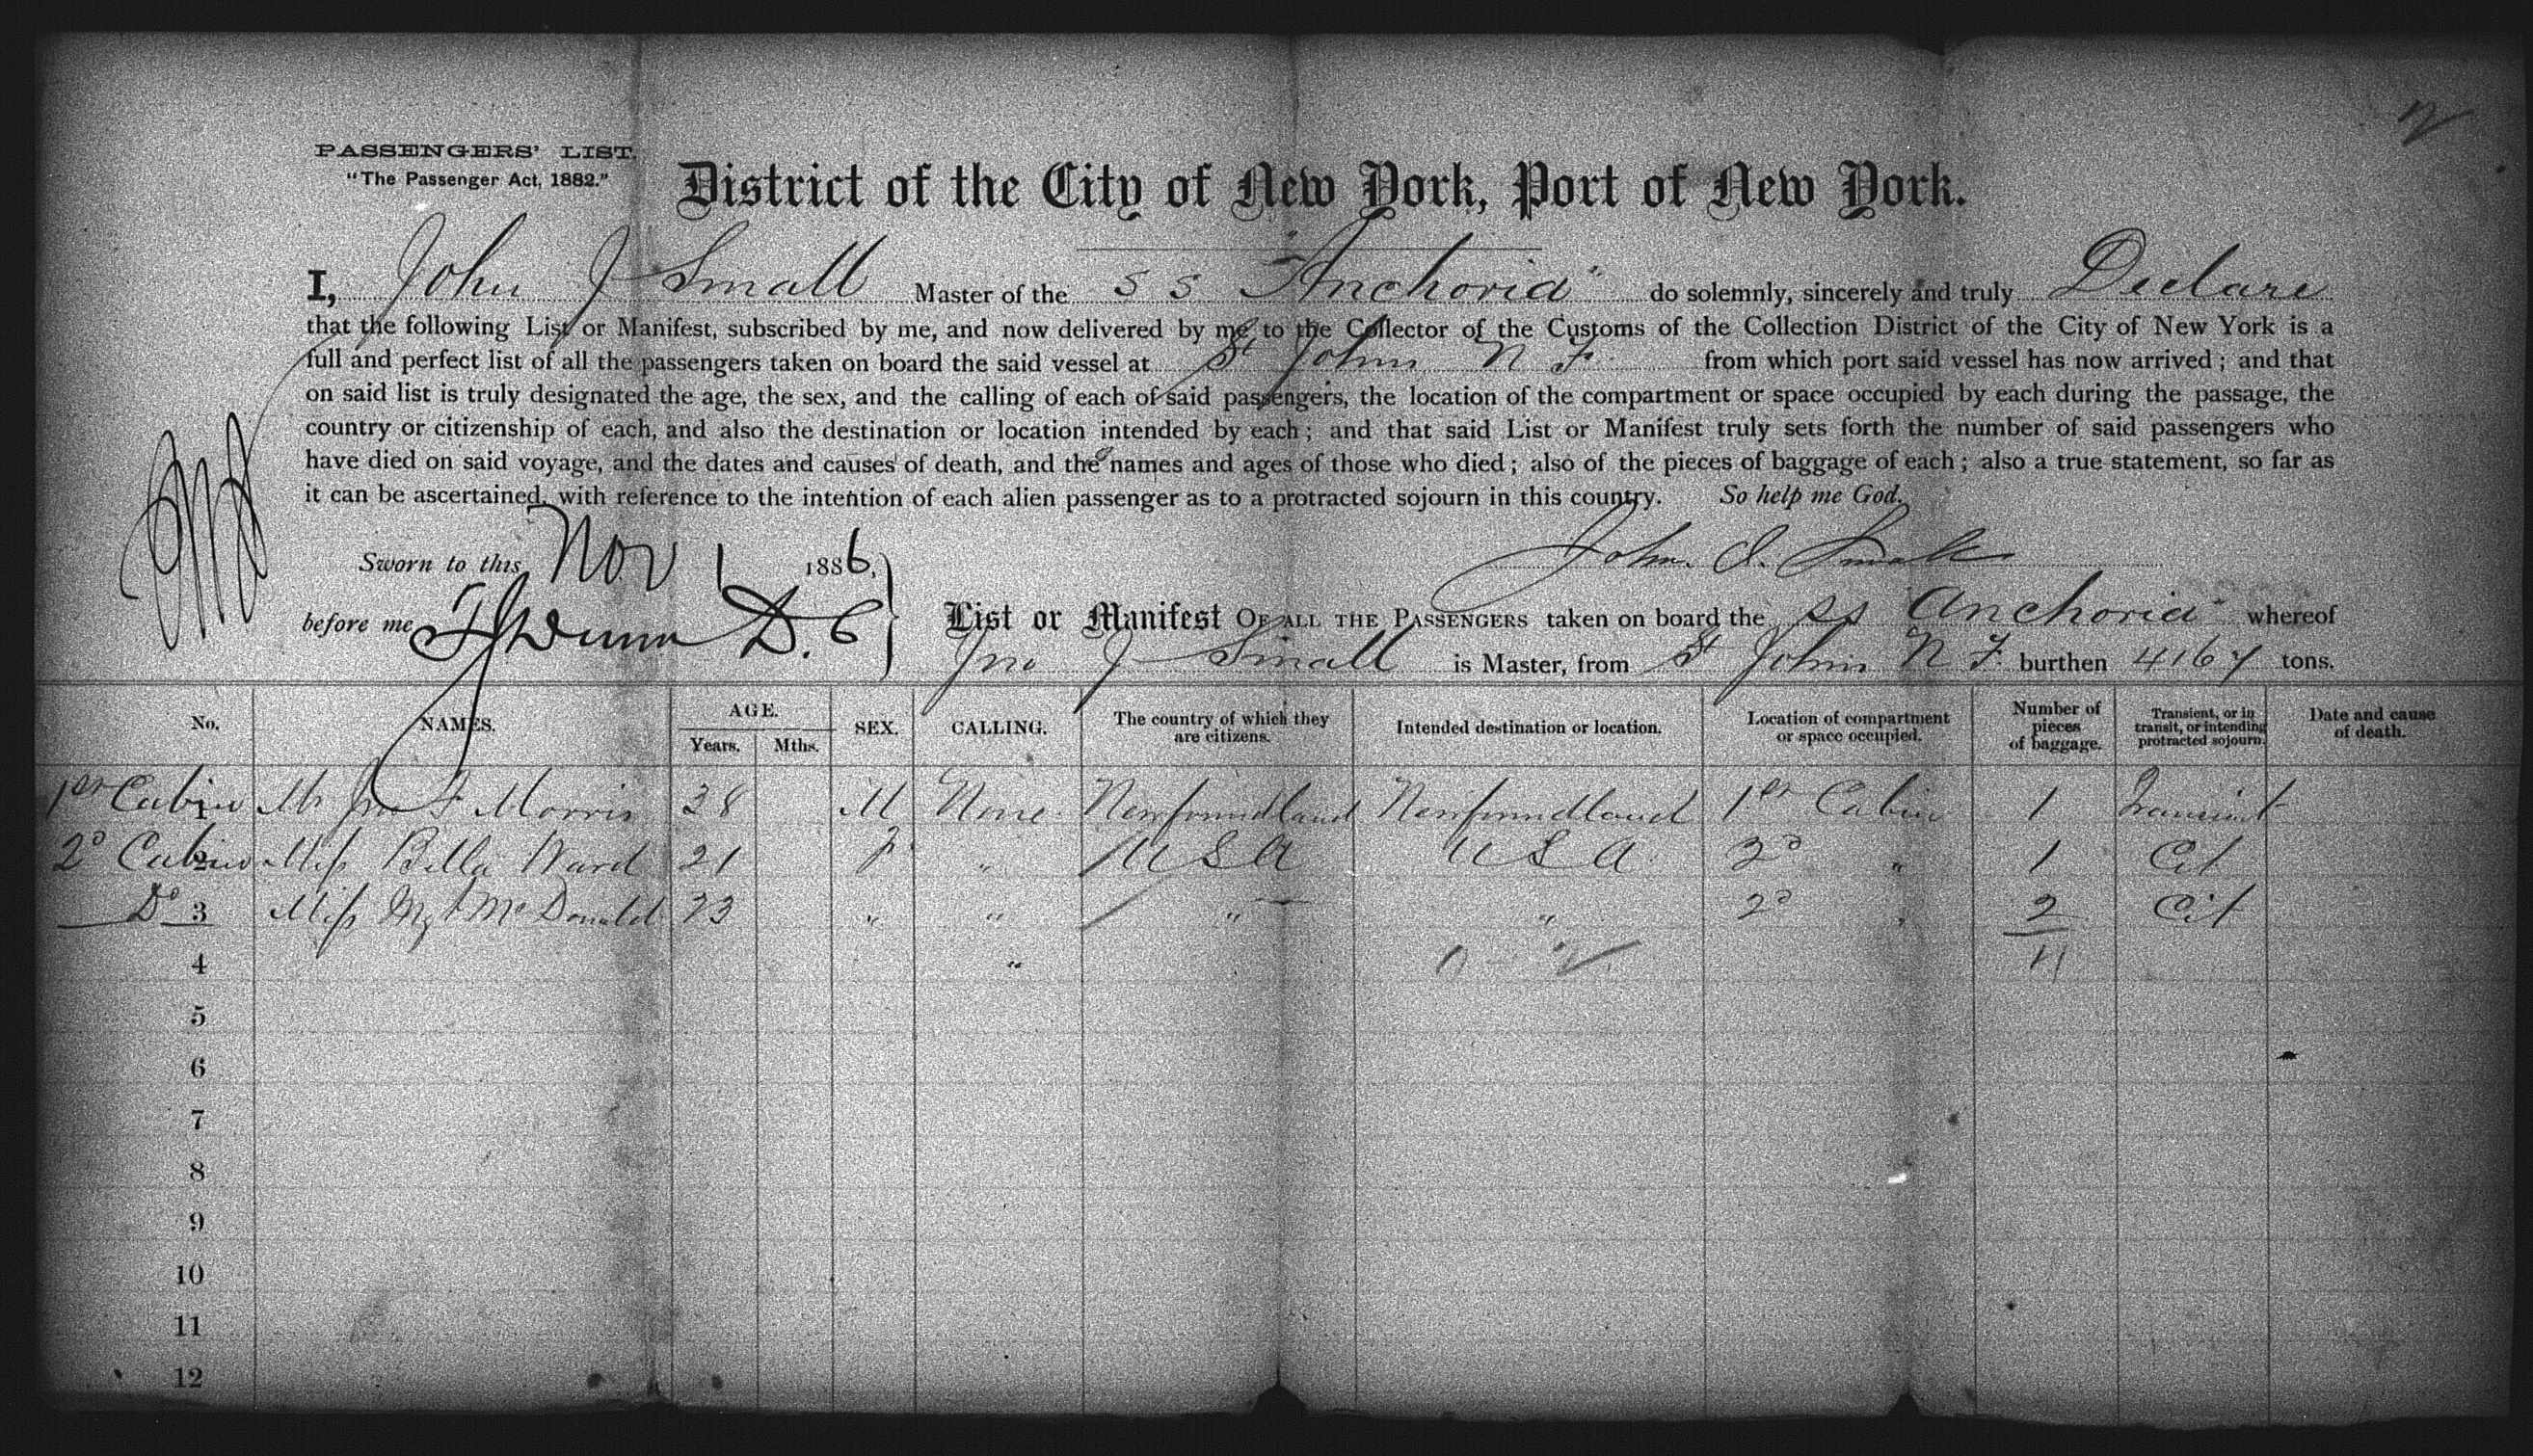 PASSENGERS' LIST.
"The Passenger Act, 1882."
District of the City of New York, Port of New York.
I, John J Small Master of the S S "Anchoria" do solemnly, sincerely and truly Declare
that the following List or Manifest, subscribed by me, and now delivered by me to the Collector of the Customs of the Collection District of the City of New York is a
full and perfect list of all the passengers taken on board the said vessel at St Johns N F from which port said vessel has now arrived; and that
on said list is truly designated the age, the sex, and the calling of each of said passengers, the location of the compartment or space occupied by each during the passage, the
country or citizenship of each, and also the destination or location intended by each; and that said List or Manifest truly sets forth the number of said passengers who
have died on said voyage, and the dates and causes of death, and the names and ages of those who died; also of the pieces of baggage of each; also a true statement, so far as
it can be ascertained, with reference to the intention of each alien passenger as to a protracted sojourn in this country. So help me God.
Sworn to this Nov 1 1886, John J. Small
before me D. C List or Manifest OF ALL THE PASSENGERS taken on board the SS Anchoria whereof
Jno J Small is Master, from St Johns N F. burthen 4167 tons.
No. NAMES. AGE. Years. Mths. SEX. CALLING. The country of which they are citizens. Intended destination or location. Location of compartment or space occupied. Number of pieces of baggage. Transient, or in transit, or intending protracted sojourn. Date and cause of death.
1st Cabin 1 Mr Jno F Morris 38 M None Newfoundland Newfoundland 1st Cabin 1 Transient
2d Cabin 2 Miss Bella Ward 21 F " U S A U S A 2d " 1 Cit
Do 3 Miss Mgt McDonald 23 " " " " 2d " 2 Cit
4 " 4
5
6
7
8
9
10
11
12